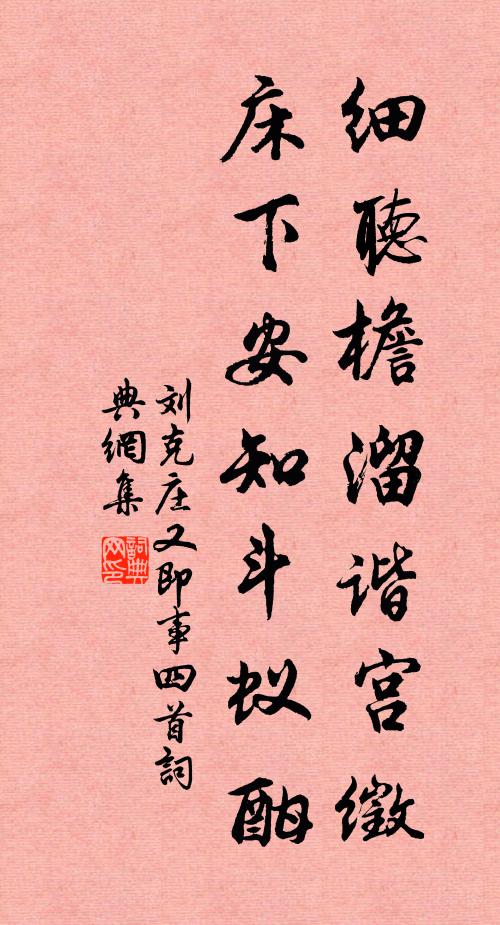 细聴檐溜谐宫徵
床下安知斗蚁酣
刘克庄又即事四首詞
典網集
詞典网印